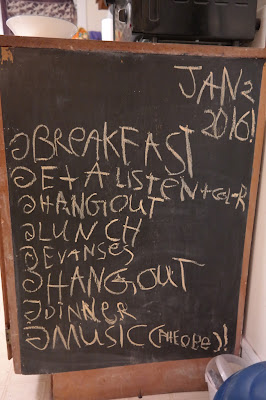 JAN 2
2016!
BREAKFAST
E + A LISTEN +
HANGOUT
LUNCH
EVANSES
HANGOUT
DINNER
MUSIC (PHEOBe)!